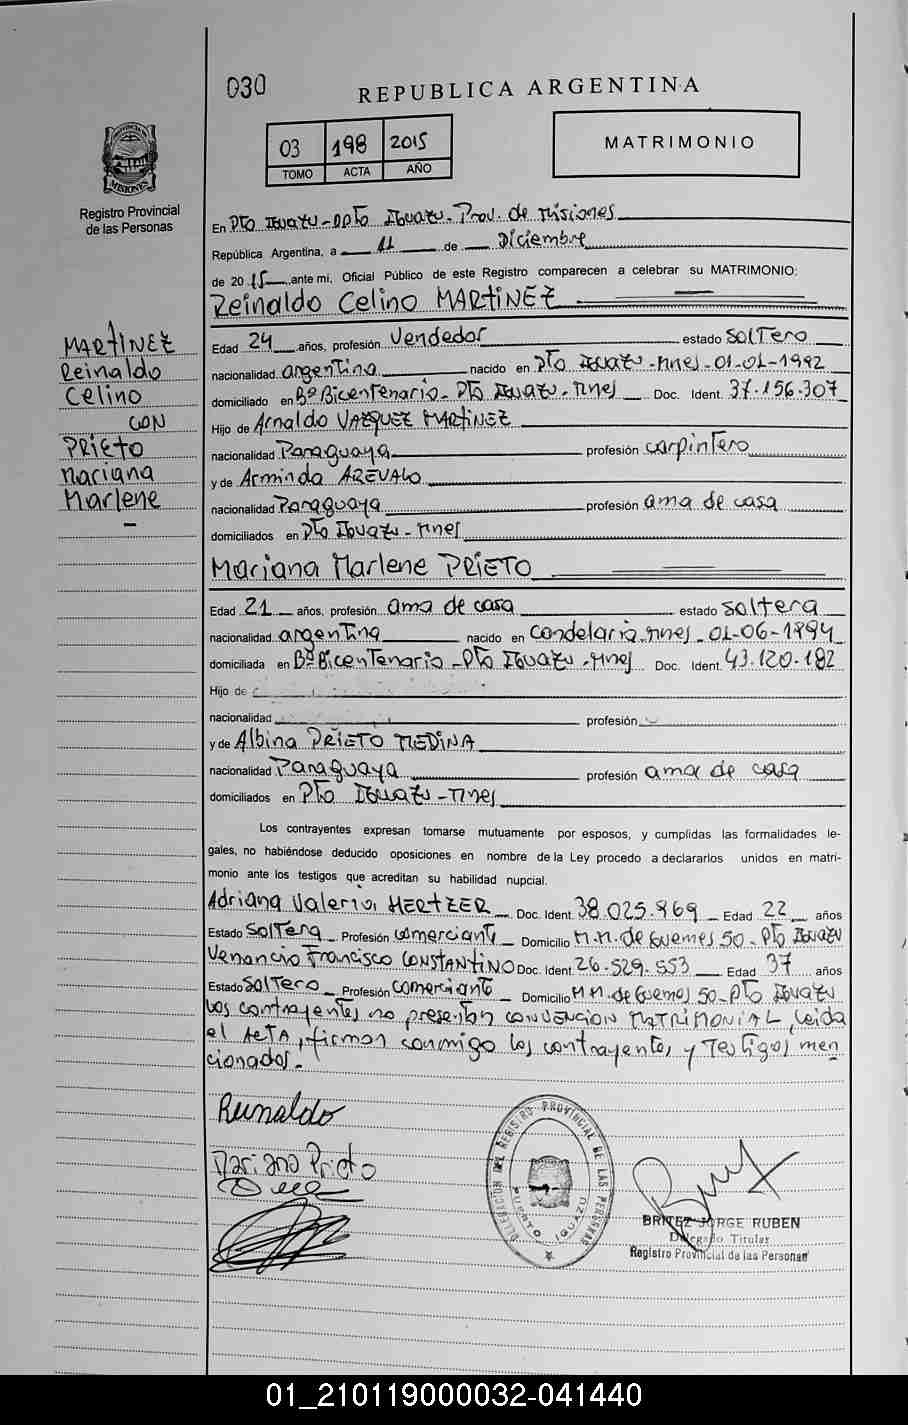 030
REPUBLICA ARGENTINA
03 198 2015
TOMO ACTA AÑO
MATRIMONIO
PROVINCIA DE
MISIONES
Registro Provincial
de las Personas
En Pto Iguazu - Dpto Iguazu - Prov. de Misiones
República Argentina, a 11 de Diciembre
de 2015 ante mi, Oficial Público de este Registro comparecen a celebrar su MATRIMONIO:
Reinaldo Celino MARTINEZ
MARTINEZ
Reinaldo
Celino
CON
PRIETO
Mariana
Marlene
Edad 24 años, profesión Vendedor estado Soltero
nacionalidad argentina nacido en Pto Iguazu - Mnes - 01-01-1992
domiciliado en Bº Bicentenario - Pto Iguazu - Mnes Doc. Ident. 37.156.307
Hijo de Arnaldo VAZQUEZ MARTINEZ
nacionalidad Paraguaya profesión carpintero
y de Arminda AREVALO
nacionalidad Paraguaya profesión ama de casa
domiciliados en Pto Iguazu - Mnes
Mariana Marlene PRIETO
Edad 21 años, profesión ama de casa estado Soltera
nacionalidad argentina nacido en Candelaria, Mnes - 01-06-1994
domiciliada en Bº Bicentenario - Pto Iguazu - Mnes Doc. Ident. 43.120.182
Hijo de
nacionalidad profesión
y de Albina PRIETO MEDINA
nacionalidad Paraguaya profesión ama de casa
domiciliados en Pto Iguazu - Mnes
Los contrayentes expresan tomarse mutuamente por esposos, y cumplidas las formalidades le-
gales, no habiéndose deducido oposiciones en nombre de la Ley procedo a declararlos unidos en matri-
monio ante los testigos que acreditan su habilidad nupcial.
Adriana Valeria HERTZER Doc. Ident. 38.025.969 Edad 22 años
Estado Soltera Profesión comerciante Domicilio M.M. de Guemes 50 - Pto Iguazu
Venancio Francisco CONSTANTINO Doc. Ident. 26.529.553 Edad 37 años
Estado Soltero Profesión comerciante Domicilio M M. de Guemes 50 - Pto Iguazu
Los contrayentes no presentan CONVENCION MATRIMONIAL, Leida
el ACTA, firman conmigo los contrayentes y Testigos men
cionados.-
Reinaldo
Mariana Prieto
DELEGACION DEL REGISTRO PROVINCIAL DE LAS PERSONAS
PUERTO IGUAZU
BRITEZ JORGE RUBEN
Delegado Titular
Registro Provincial de las Personas
01_210119000032-041440